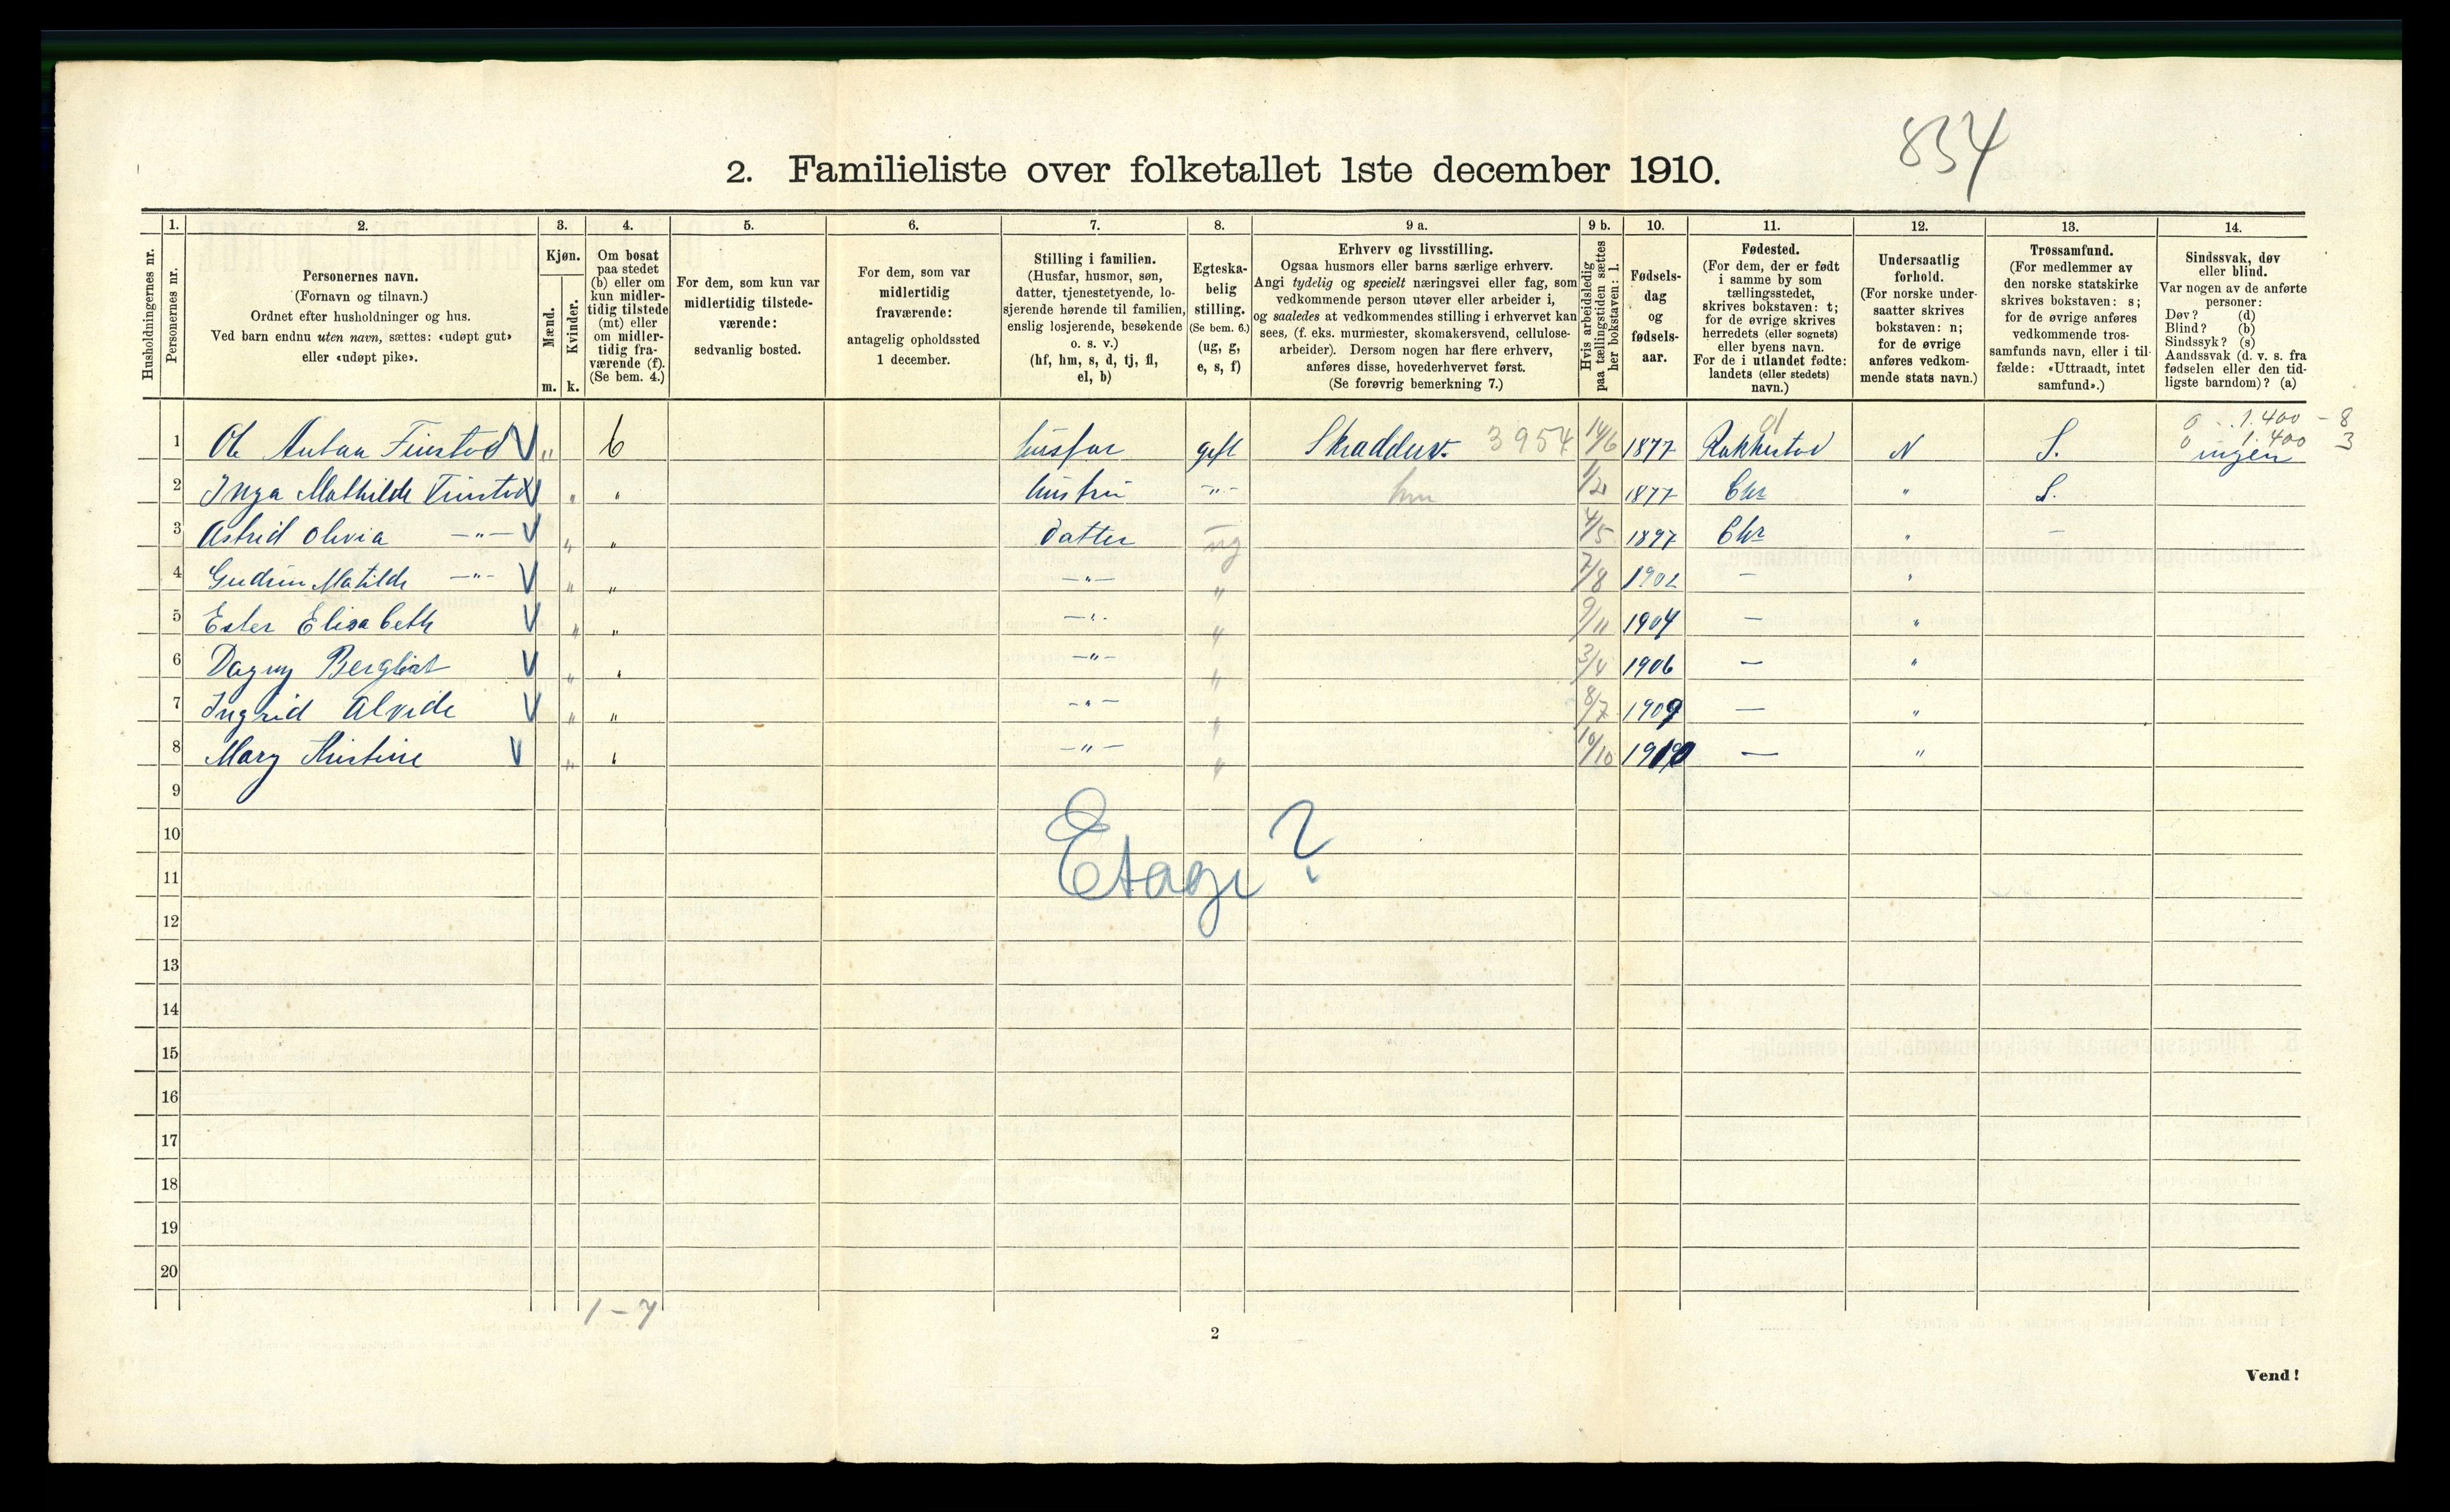 834
2. Familieliste over folketallet 1ste december 1910.
Husholdningernes nr.
1. Personernes nr.
2. Personernes navn.
(Fornavn og tilnavn.)
Ordnet efter husholdninger og hus.
Ved barn endnu uten navn, sættes: «udøpt gut»
eller «udøpt pike».
3. Kjøn.
Mænd. m.
Kvinder. k.
4. Om bosat
paa stedet
(b) eller om
kun midler-
tidig tilstede
(mt) eller
om midler-
tidig fra-
værende (f).
(Se bem. 4.)
5. For dem, som kun var
midlertidig tilstede-
værende:
sedvanlig bosted.
6. For dem, som var
midlertidig
fraværende:
antagelig opholdssted
1 december.
7. Stilling i familien.
(Husfar, husmor, søn,
datter, tjenestetyende, lo-
sjerende hørende til familien,
enslig losjerende, besøkende
o. s. v.)
(hf, hm, s, d, tj, fl,
el, b)
8. Egteska-
belig
stilling.
(Se bem. 6.)
(ug, g,
e, s, f)
9 a. Erhverv og livsstilling.
Ogsaa husmors eller barns særlige erhverv.
Angi tydelig og specielt næringsvei eller fag, som
vedkommende person utøver eller arbeider i,
og saaledes at vedkommendes stilling i erhvervet kan
sees, (f. eks. murmester, skomakersvend, cellulose-
arbeider). Dersom nogen har flere erhverv,
anføres disse, hovederhvervet først.
(Se forøvrig bemerkning 7.)
9 b. Hvis arbeidsledig
paa tællingstiden sættes
her bokstaven: l.
10. Fødsels-
dag
og
fødsels-
aar.
11. Fødested.
(For dem, der er født
i samme by som
tællingsstedet,
skrives bokstaven: t;
for de øvrige skrives
herredets (eller sognets)
eller byens navn.
For de i utlandet fødte:
landets (eller stedets)
navn.)
12. Undersaatlig
forhold.
(For norske under-
saatter skrives
bokstaven: n;
for de øvrige
anføres vedkom-
mende stats navn.)
13. Trossamfund.
(For medlemmer av
den norske statskirke
skrives bokstaven: s;
for de øvrige anføres
vedkommende tros-
samfunds navn, eller i til-
fælde: «Uttraadt, intet
samfund».)
14. Sindssvak, døv
eller blind.
Var nogen av de anførte
personer:
Døv? (d)
Blind? (b)
Sindssyk? (s)
Aandssvak (d. v. s. fra
fødselen eller den tid-
ligste barndom)? (a)
0 1.400 - 8
0 - 1.400 3
1 Ole Finstad V " b husfar gift Skrædder 3954 14/6 1877 01 Rakkestad N S. ingen
2 Inga Mathilde Finstad V " " hustru -"- hm 1/2 1877 Chr " S.
3 Astrid Olivia -"- V " " datter ug 4/5 1897 Chr " -
4 Gudrun Matilde -"- V " " -"- " 7/8 1902 - "
5 Ester Elisabeth V " " -"- " 9/11 1904 - "
6 Dagny Bergliot V " " -"- " 3/4 1906 - "
7 Ingrid Alvide V " " -"- " 8/7 1909 - "
8 Mary Kristine V " " -"- " 10/10 1910 - "
9
10
Etage?
11
12
13
14
15
16
17
18
19
20
1-7
2
Vend!